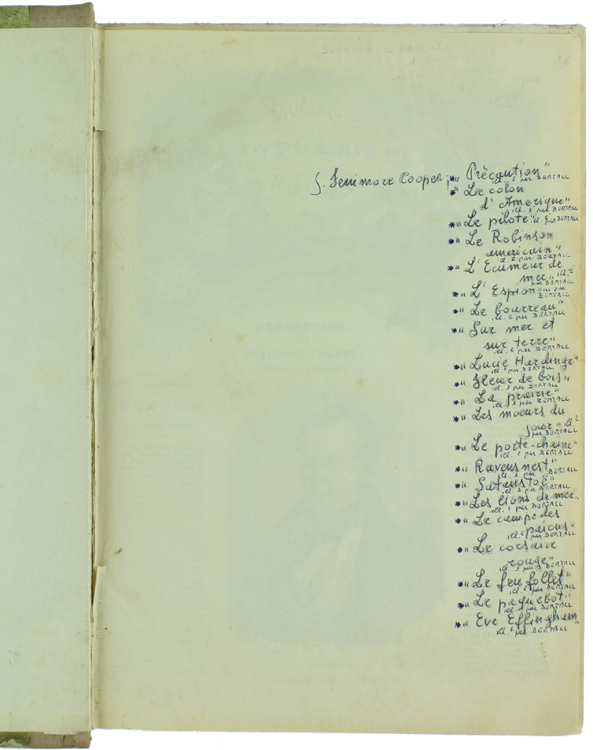 J. Fenimore Cooper: „Précaution"
ill. é par BERTALL
„Le colon
d'Amerique"
ill. é par BERTALL
„Le pilote" ill. é par BERTALL
„Le Robinson
americain"
ill. é par BERTALL
„L'Ecumeur de
mer" ill. é
„L'Espion" ill. par
BERTALL
„Le bourreau"
ill. é par BERTALL
„Sur mer et
sur terre"
ill. é par BERTALL
„Lucie Hardinge"
ill. é par BERTALL
„Fleur de bois"
ill. é par BERTALL
„La prairie"
ill. é par BERTALL
„Les moeurs du
jour" ill. é
par BERTALL
„Le porte-chaine"
ill. é par BERTALL
„Ravensnest"
ill. é par BERTALL
„Satanstoe"
ill. é par BERTALL
„Les lions de mer"
ill. é par BERTALL
„Le camp des
paiens"
ill. é par BERTALL
„Le corsaire
rouge"
ill. é par BERTALL
„Le feu follet"
ill. é par BERTALL
„Le paquebot"
ill. é par BERTALL
„Eve Effingham"
ill. é par BERTALL